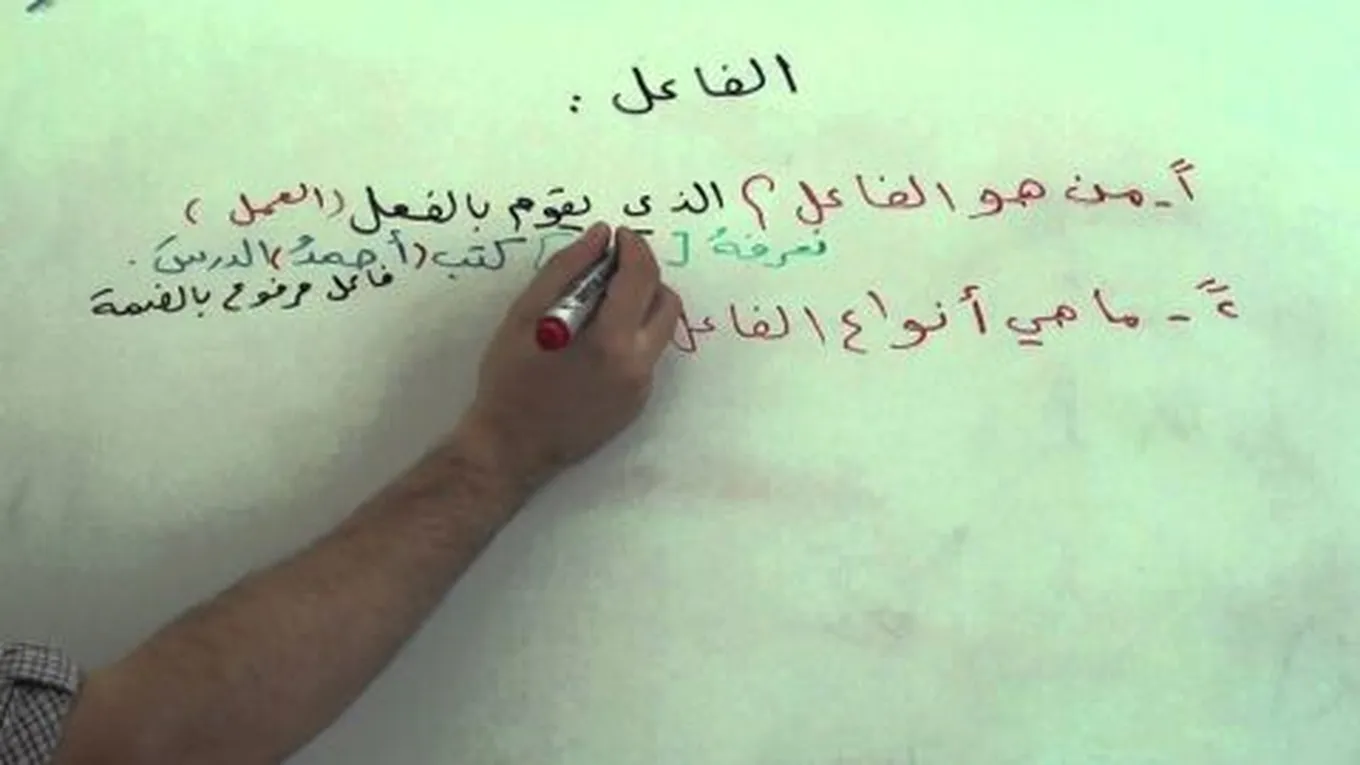 الفاعل :
أ - من هو الفاعل ؟ الذي يقوم بالفعل (العمل)
نعرفهُ [ ] كتب (أحمدُ) الدرسَ .
فاعل مرفوع بالضمة
٢ً - ما هي أنواع الفاعل